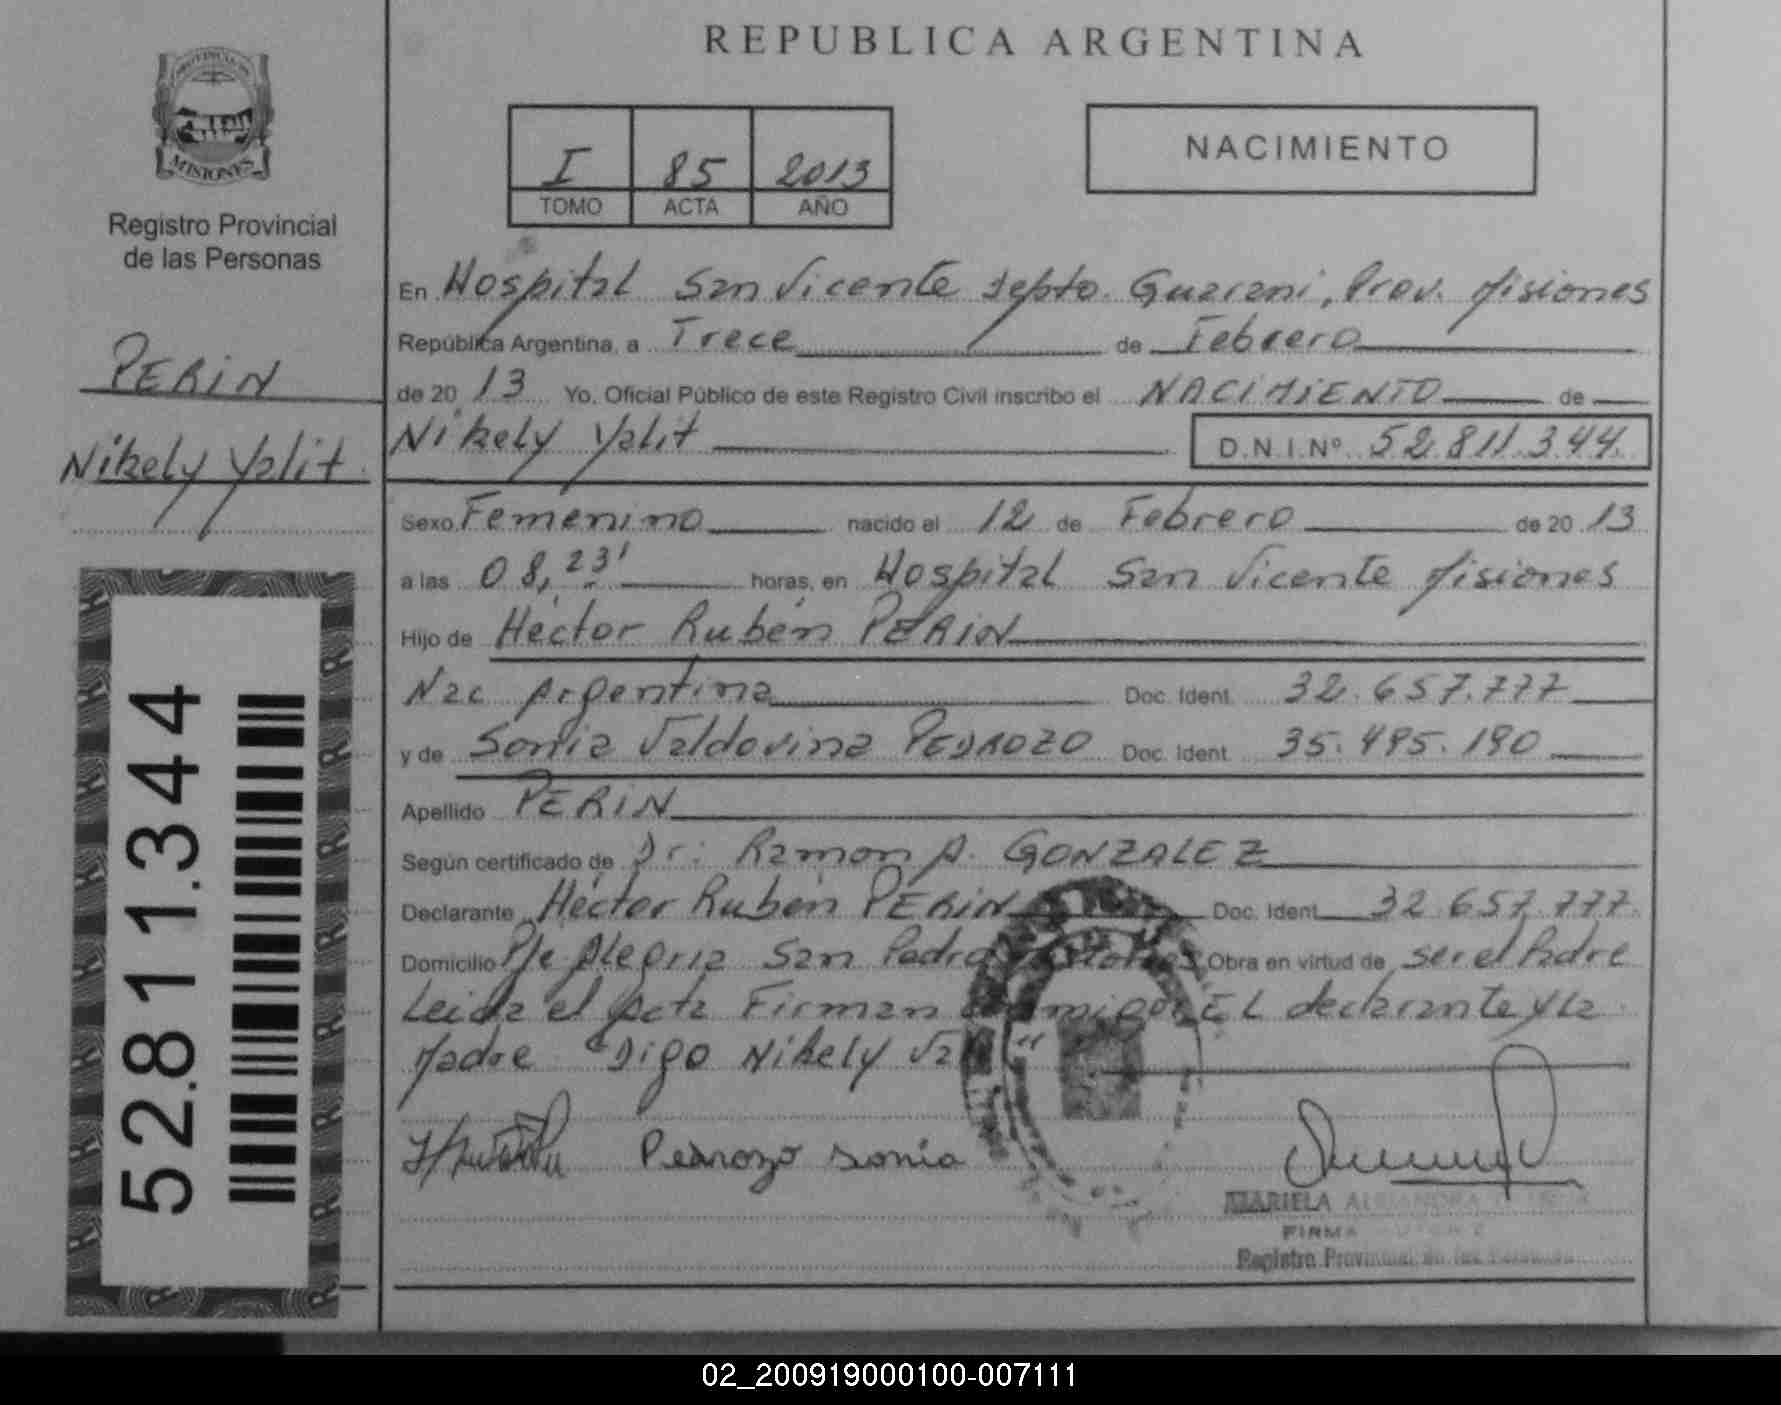 REPUBLICA ARGENTINA
PROVINCIA DE
MISIONES
Registro Provincial
de las Personas
I 85 2013
TOMO ACTA AÑO
NACIMIENTO
PERIN
Nikely Yalit
52.811.344
En Hospital San Vicente depto. Guarani, Prov. Misiones
República Argentina, a Trece de Febrero
de 20 13 Yo, Oficial Público de este Registro Civil inscribo el NACIMIENTO de
Nikely Yalit D.N.I.Nº 52.811.344.
Sexo Femenino nacido el 12 de Febrero de 20 13
a las 08,23' horas, en Hospital San Vicente Misiones
Hijo de Héctor Rubén PERIN
Nac Argentina Doc. Ident. 32.657.777
y de Sonia Valdovina PEDROZO Doc. Ident. 35.495.190
Apellido PERIN
Según certificado de Dr. Ramon A. GONZALEZ
Declarante Héctor Rubén PERIN Doc. Ident. 32.657.777.
Domicilio Pje Alegria San Pedro Obra en virtud de ser el Padre
Leida el Acta Firman EL declarante y la
Madre "Digo Nikely
Pedrozo Sonia
MARIELA ALEJANDRA
FIRMA
Registro Provincial de las Personas
02_200919000100-007111